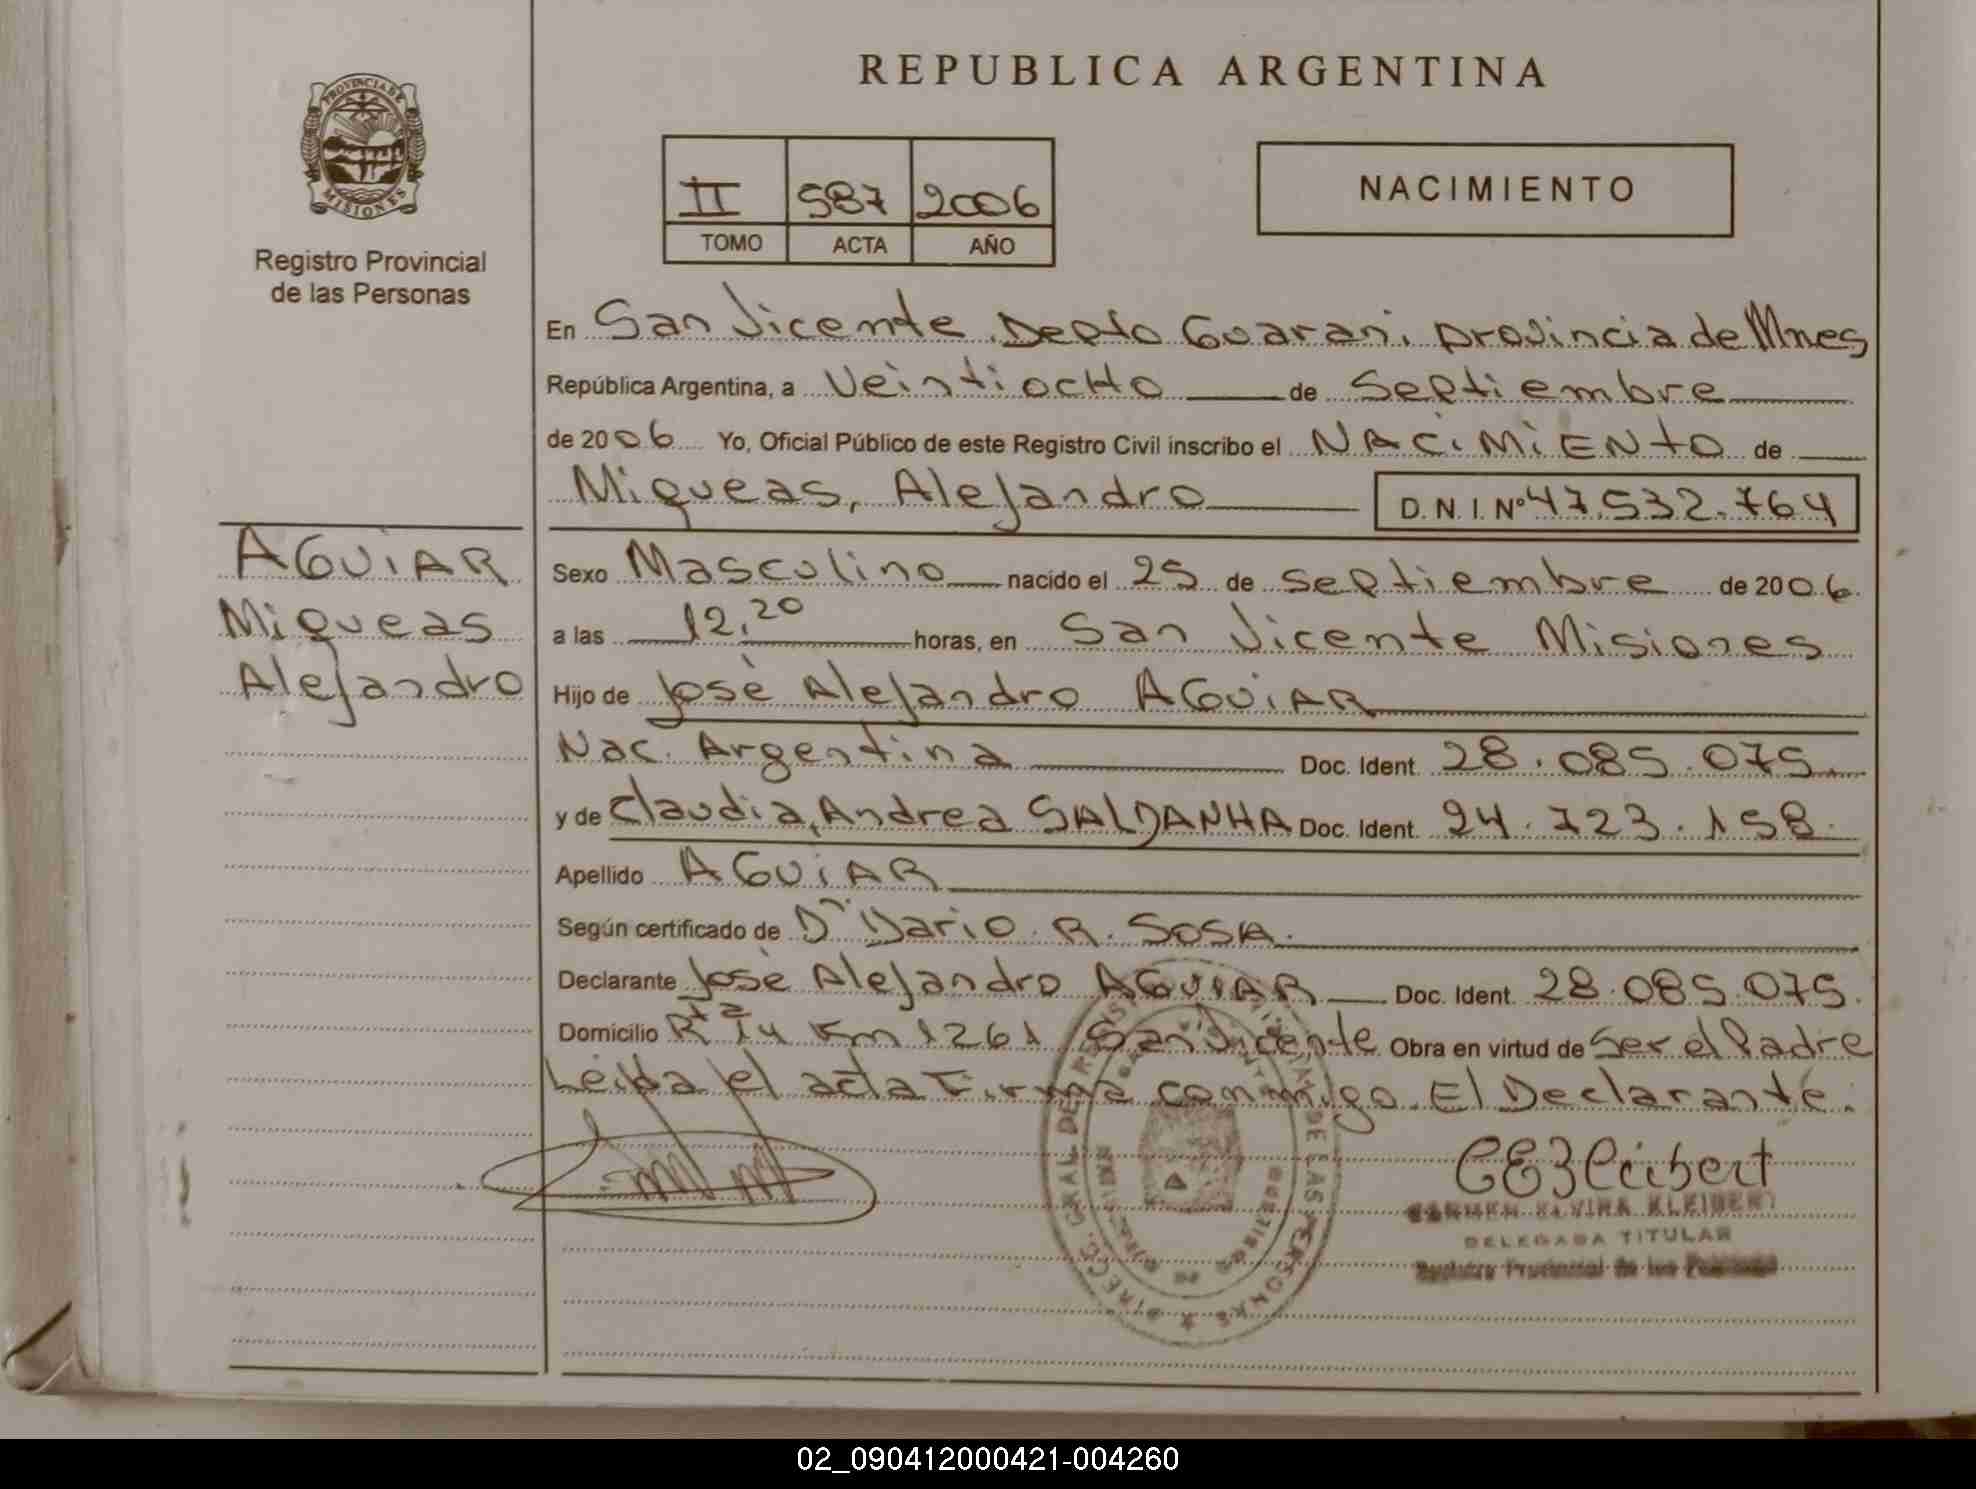 REPUBLICA ARGENTINA
PROVINCIA DE
MISIONES
Registro Provincial
de las Personas
II 587 2006
TOMO ACTA AÑO
NACIMIENTO
En San Vicente, Depto Guarani, provincia de Mnes
República Argentina, a Veintiocho de Septiembre
de 2006 Yo, Oficial Público de este Registro Civil inscribo el NACIMIENTO de
Miqueas, Alejandro D.N.I. Nº 47.532.764
AGUIAR
Miqueas
Alejandro
Sexo Masculino nacido el 25 de Septiembre de 2006.
a las 12,20 horas, en San Vicente Misiones
Hijo de José Alejandro AGUIAR
Nac. Argentina Doc. Ident. 28.085.075.
y de Claudia, Andrea SALDANHA Doc. Ident. 24.723.158.
Apellido AGUIAR
Según certificado de Dr Dario R. SOSA.
Declarante José Alejandro AGUIAR Doc. Ident. 28.085.075.
Domicilio Rta 14 Km 1261 San Vicente Obra en virtud de Ser el Padre
Leida el acta Firma conmigo. El Declarante.
CEKleibert
CARMEN ELVIRA KLEIBERT
DELEGADA TITULAR
Registro Provincial de las Personas
02_090412000421-004260